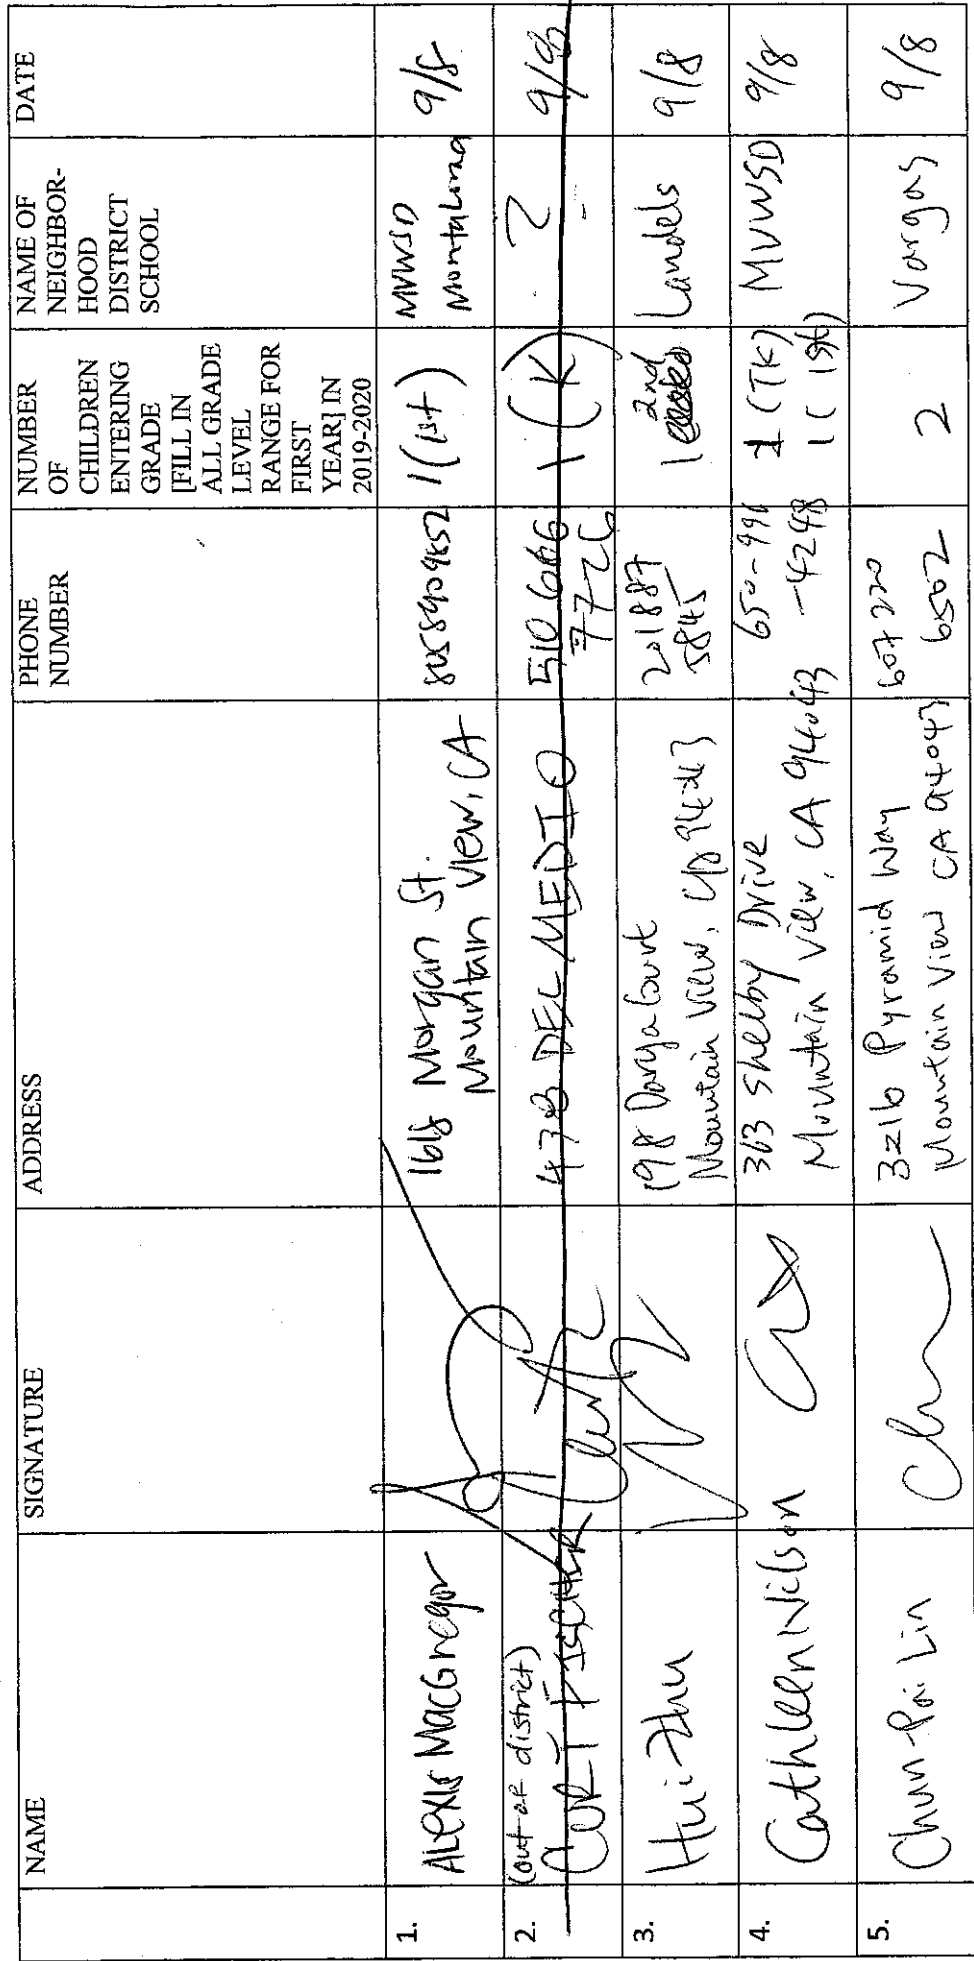 NAME
SIGNATURE
ADDRESS
PHONE
NUMBER
NUMBER
OF
CHILDREN
ENTERING
GRADE
[FILL IN
ALL GRADE
LEVEL
RANGE FOR
FIRST
YEAR] IN
2019-2020
NAME OF
NEIGHBOR-
HOOD
DISTRICT
SCHOOL
DATE
1.
Alexis MacGregor
1618 Morgan St.
Mountain View, CA
8058909852
1 (1st)
MVWSD
Montaloma
9/8
2.
(out of district)
CURT FISCHER
473 DEL MEDIO
510 666
7726
1 (K)
?
9/8
3.
Hui Zhu
198 Darya Court
Mountain View, CA 94043
201887
5845
1 2nd
Landels
9/8
4.
Cathleen Nilson
363 Shelby Drive
Mountain View, CA 94043
650-996
-4248
1 (TK)
1 (1st)
MVWSD
9/8
5.
Chun-Pai Lin
Pyramid Way
Mountain View CA 94043
607 220
6502
2
Vargas
9/8